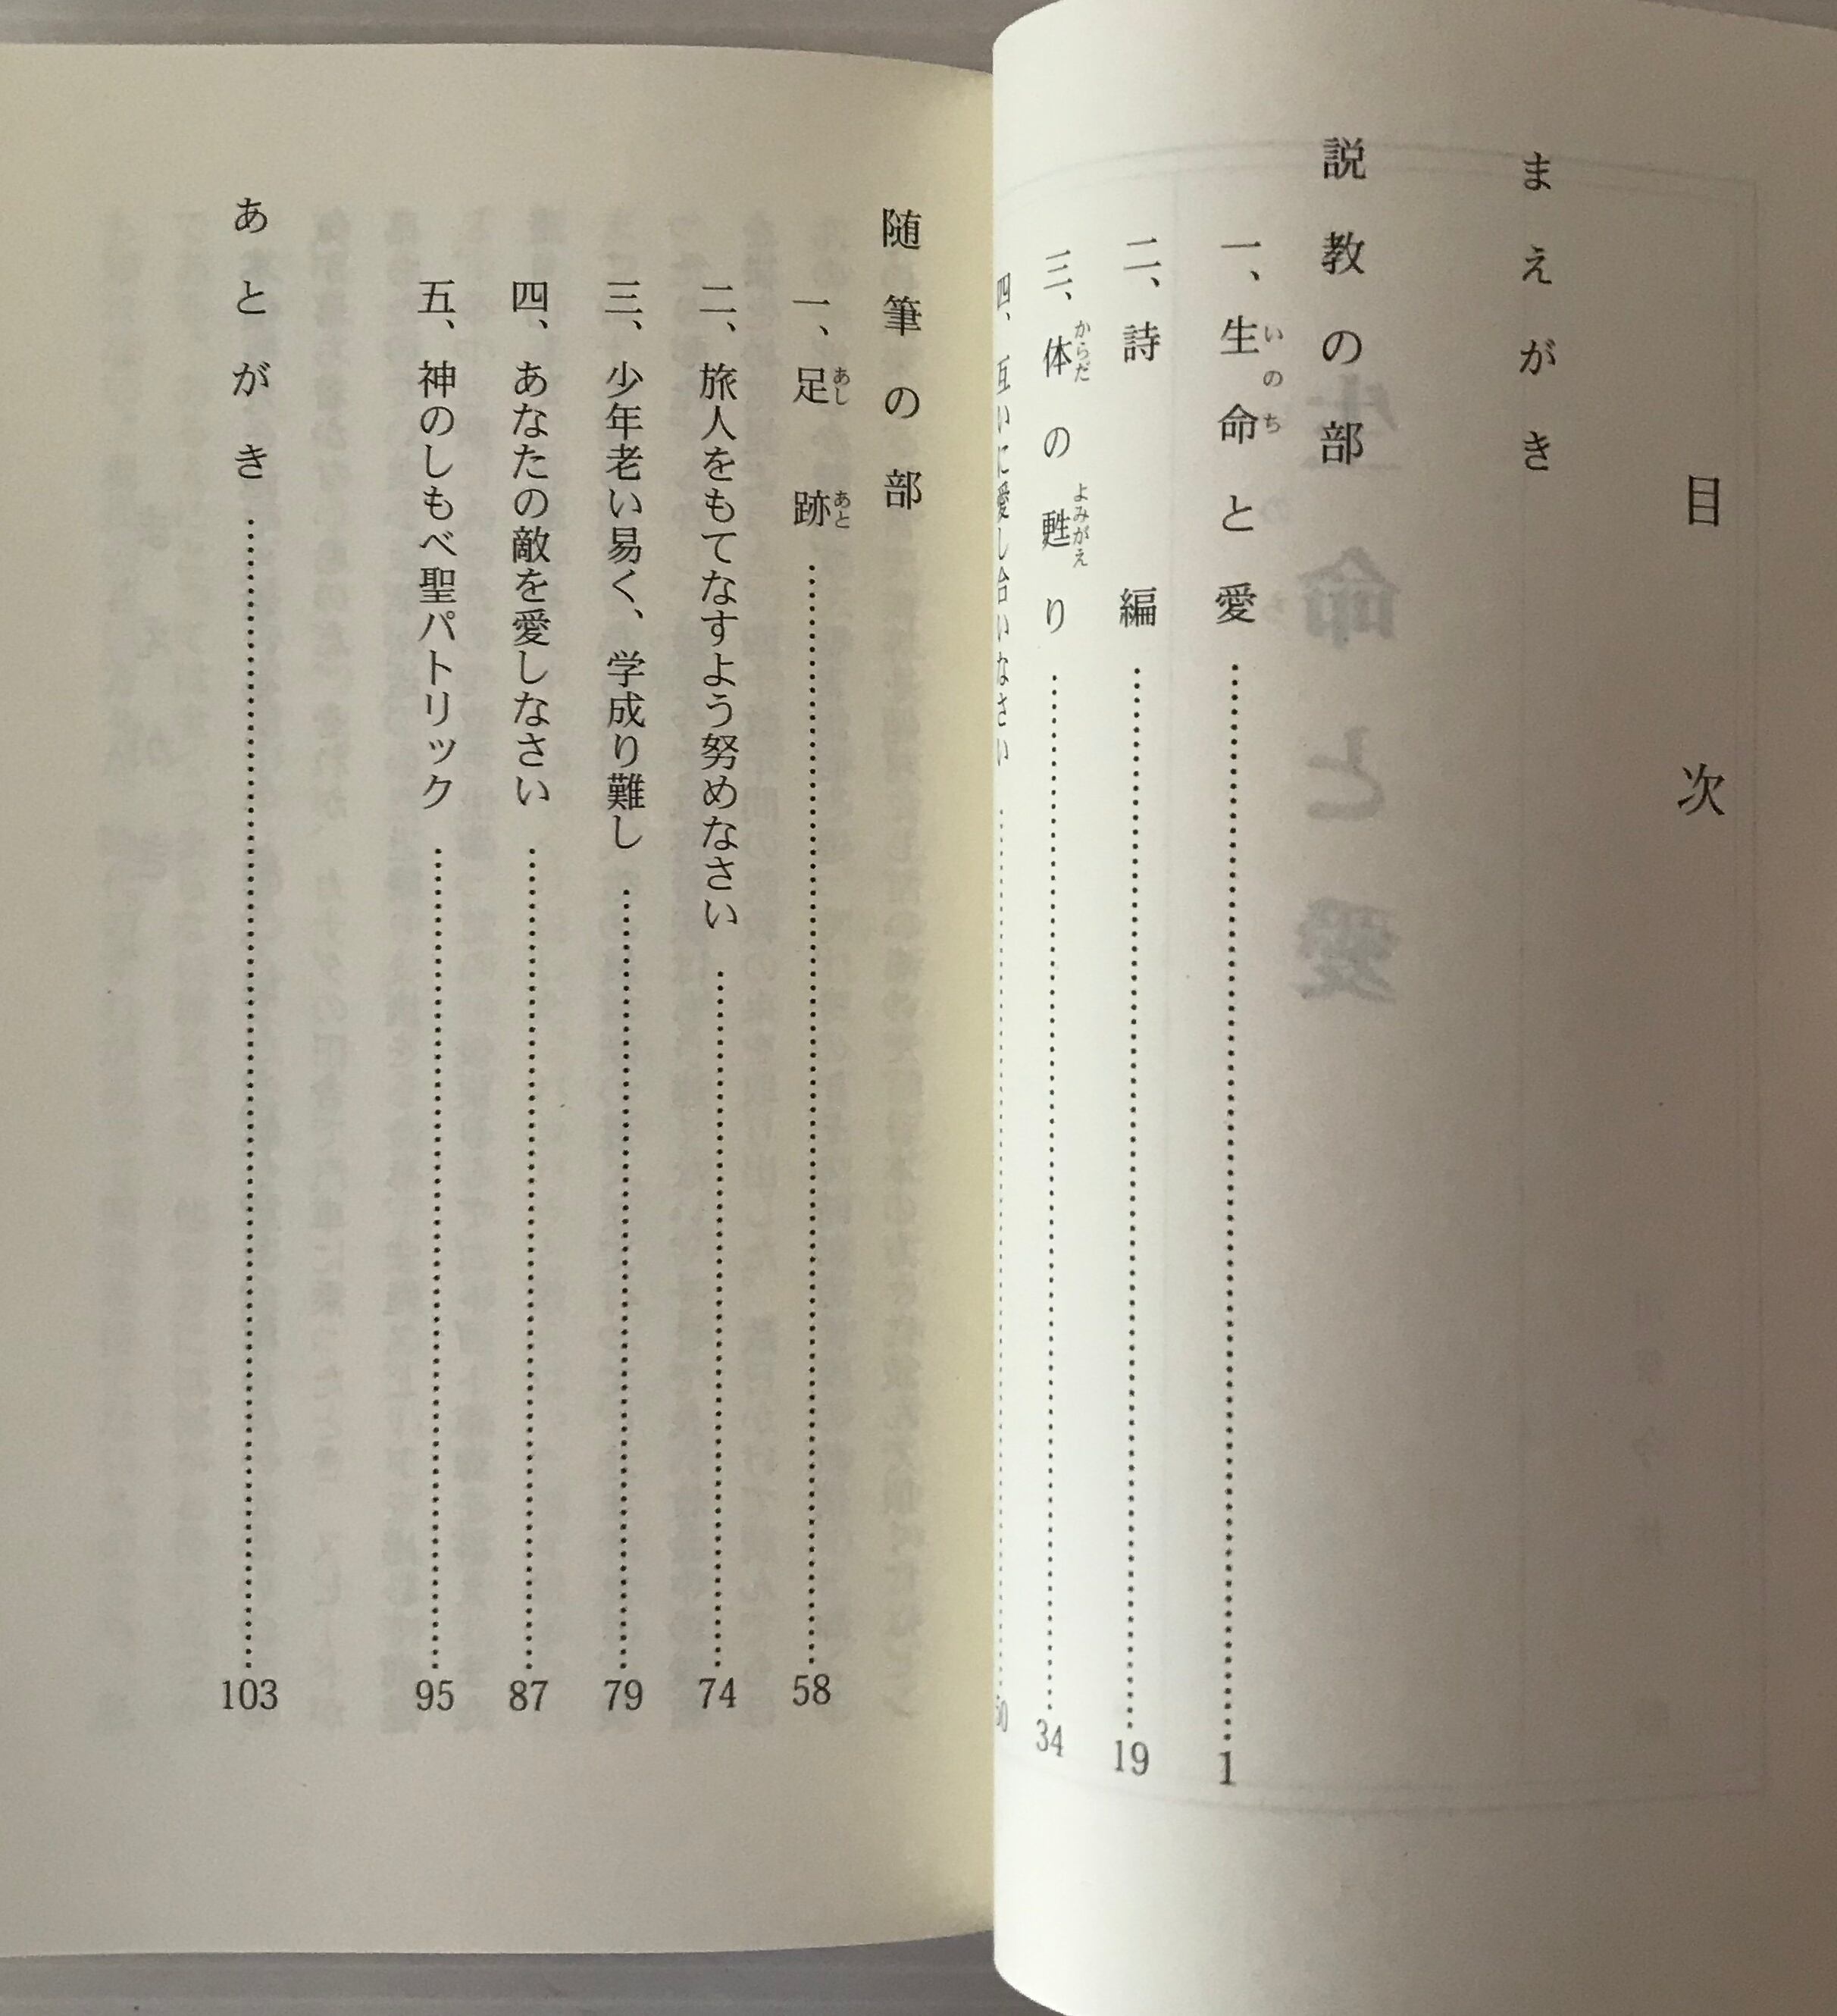 目次
まえがき
説教の部
一、生命と愛……1
いのち
二、詩編……19
三、体の甦り……34
からだ よみがえ
四、互いに愛し合いなさい……50
随筆の部
一、足跡……58
あし あと
二、旅人をもてなすよう努めなさい……74
三、少年老い易く、学成り難し……79
四、あなたの敵を愛しなさい……87
五、神のしもべ聖パトリック……95
あとがき……103